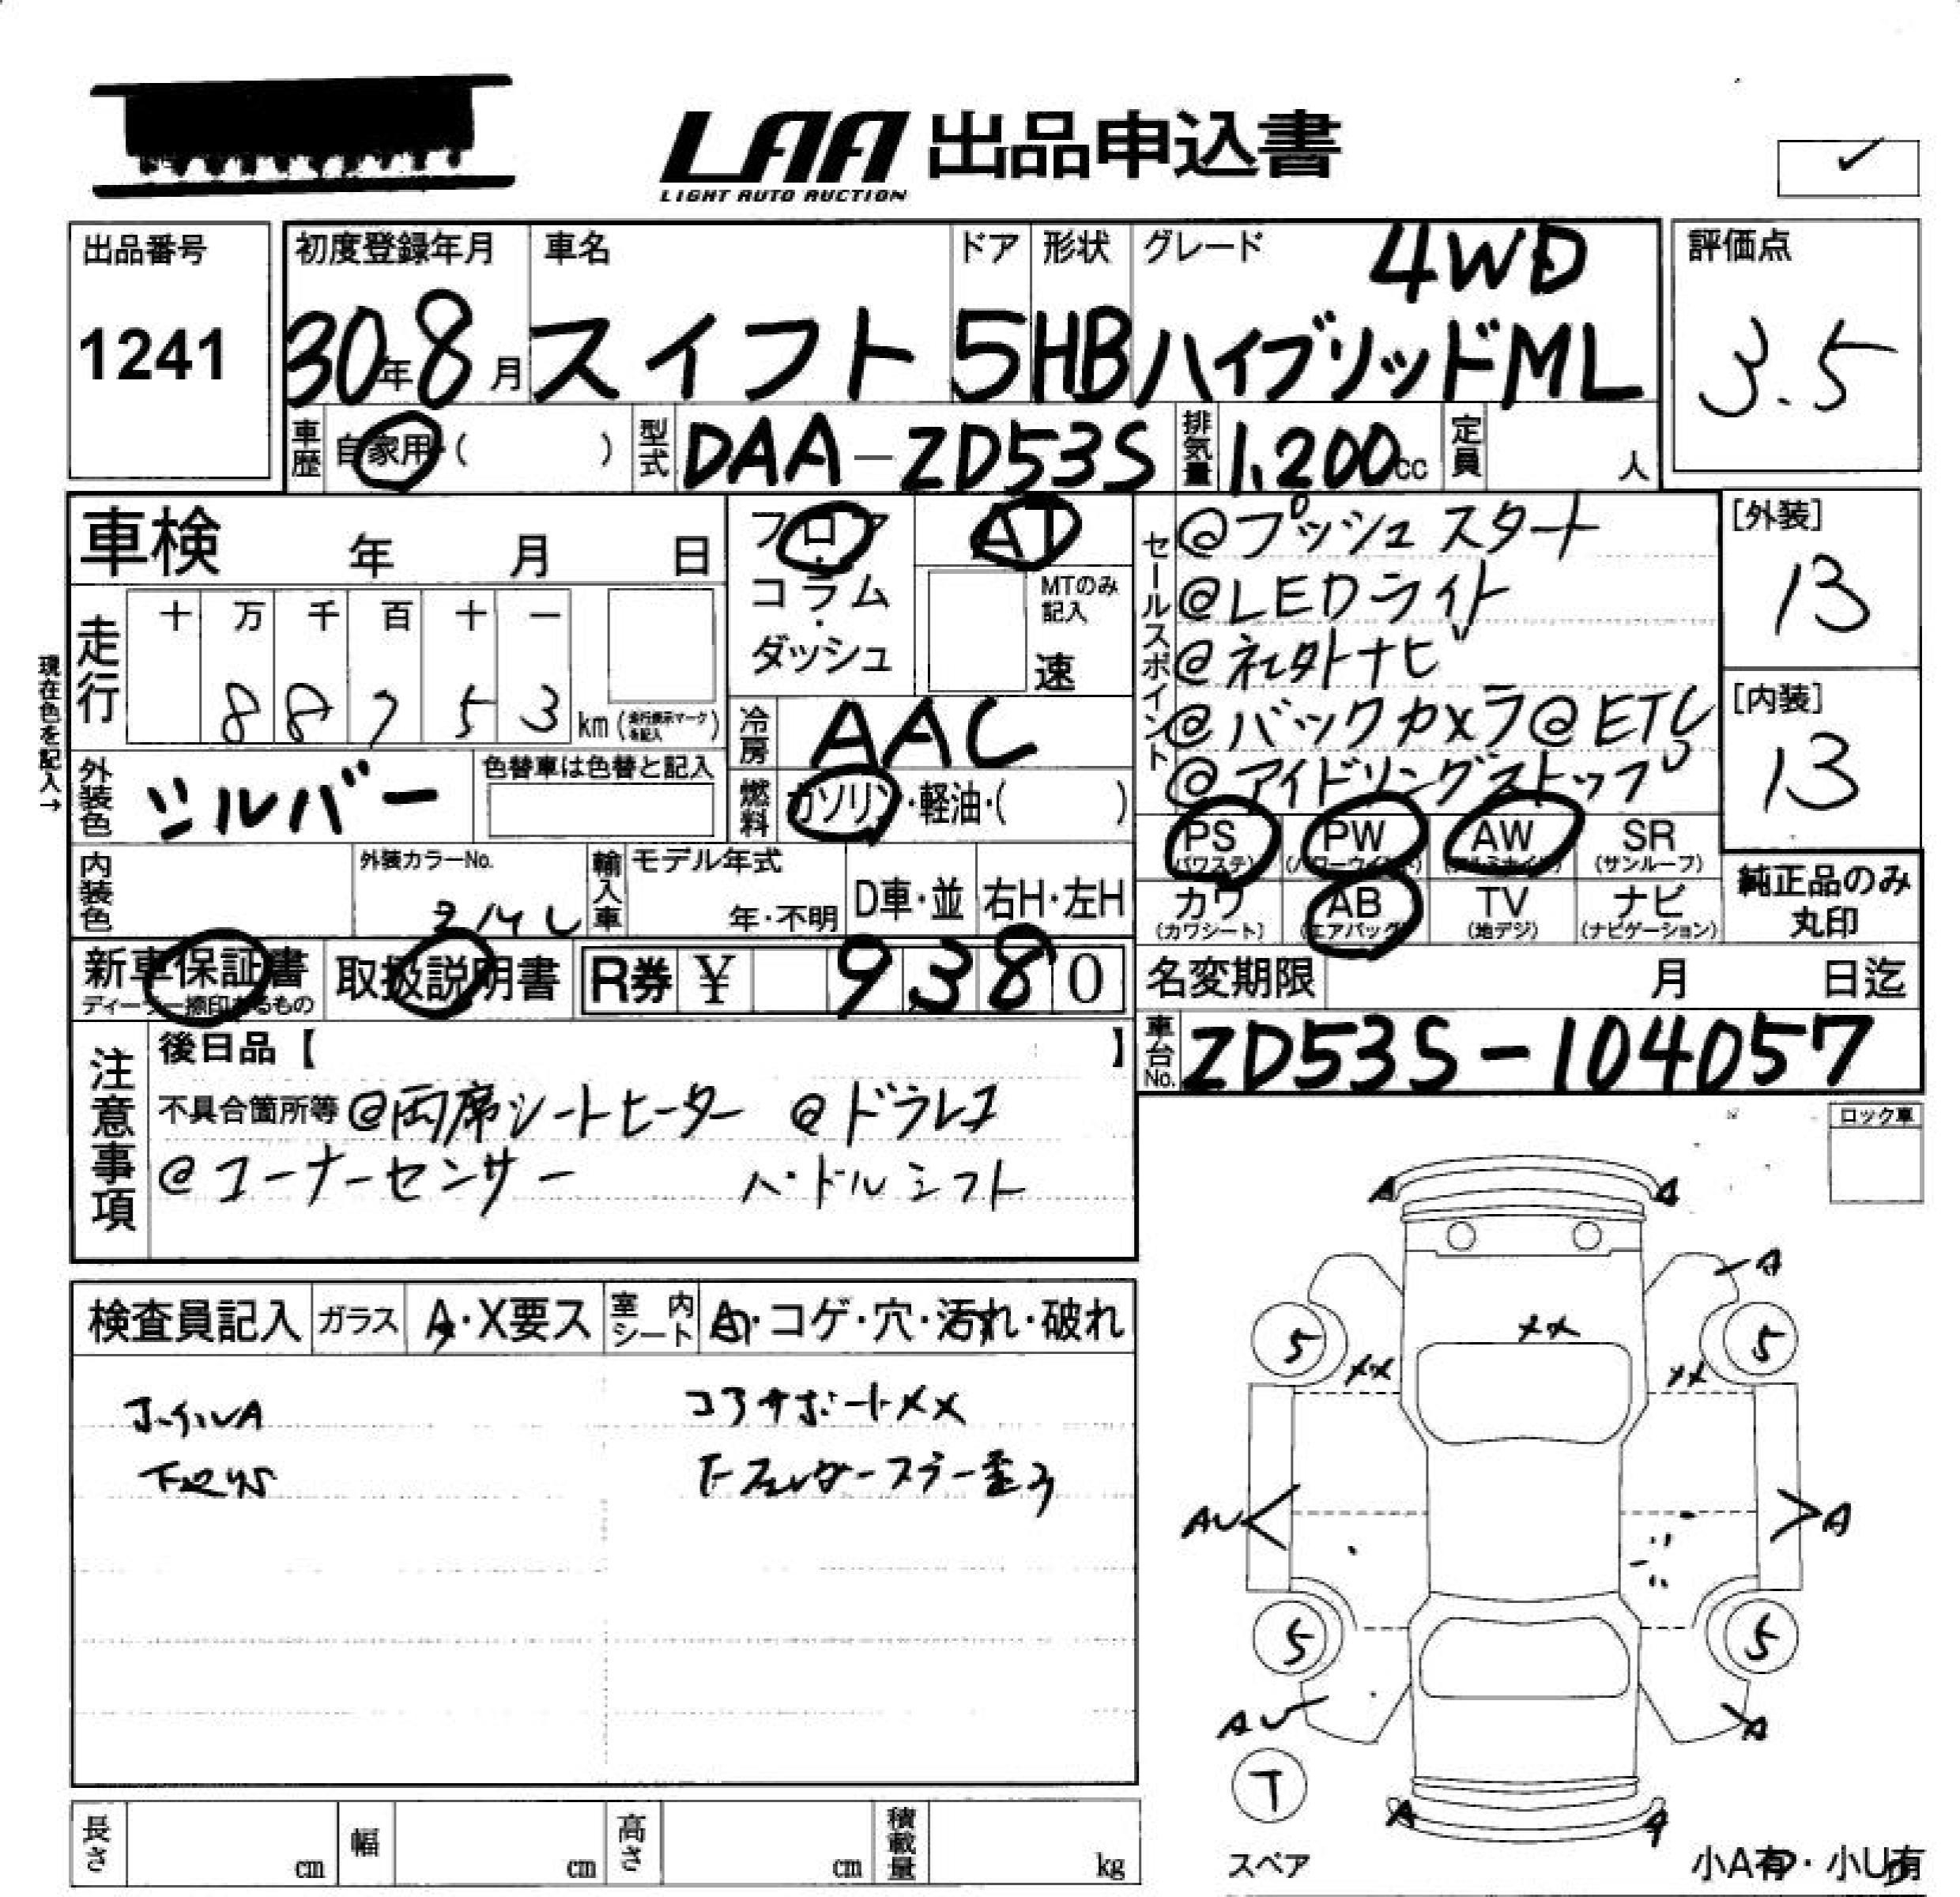 LAA 出品申込書
LIGHT AUTO AUCTION
出品番号
1241
初度登録年月
30年8月
車名
スイフト
ドア
5
形状
HB
グレード
4WD
ハイブリッドML
評価点
3.5
車歴
自家用・( )
型式
DAA-ZD53S
排気量
1,200cc
定員
人
車検 年 月 日
フロア・コラム・ダッシュ
AT
MTのみ記入
速
セールスポイント
@プッシュスタート
@LEDライト
@社外ナビ
@バックカメラ@ETC
@アイドリングストップ
[外装]
13
[内装]
13
現在色を記入→
走行
十 万 千 百 十 一
8 8 7 5 3 km (走行表示マークを記入)
冷房
AAC
外装色
シルバー
色替車は色替と記入
燃料
ガソリン・軽油・( )
PS (パワステ)
PW (パワーウインド)
AW (アルミホイル)
SR (サンルーフ)
内装色
外装カラーNo.
輸入車
モデル年式
年・不明
D車・並
右H・左H
カワ (カワシート)
AB (エアバッグ)
TV (地デジ)
ナビ (ナビゲーション)
純正品のみ
丸印
新車保証書
ディーラー捺印あるもの
取扱説明書
R券 ¥ 9380
名変期限 月 日迄
車台No.
ZD53S-104057
注意事項
後日品【 】
不具合箇所等 @両席シートヒーター @ドラレコ
@コーナーセンサー ハンドルシフト
ロック車
検査員記入
ガラス
A・X要ス
室内シート
・コゲ・穴・汚れ・破れ
ホイルA
コアサポートXX
下回りS
A A
A
XX
XX XX
5 5
AU A
5 5
AU A
T
スペア
A A
小A有・小U有
長さ cm
幅 cm
高さ cm
積載量 kg